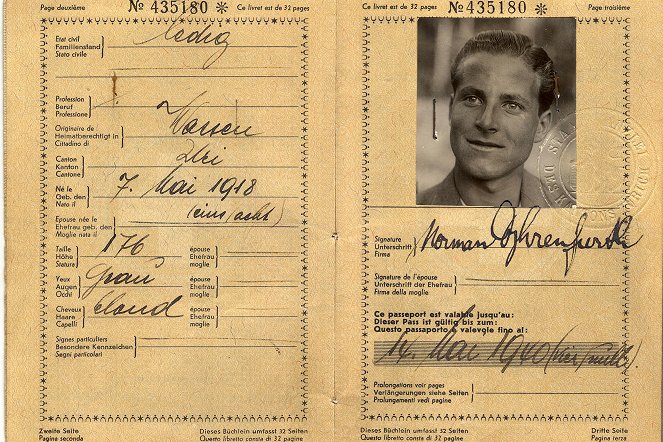 Page deuxième
№ 435180 ✻
Ce livret est de 32 pages
Etat civil
Familienstand
Stato civile
ledig
Profession
Beruf
Professione
Originaire de
Heimatberechtigt in
Cittadino di
Wassen
Canton
Kanton
Cantone
Uri
Né le
Geb. den
Nato il
7. Mai 1918
(eins/acht)
Epouse née le
Ehefrau geb. den
Moglie nata il
Taille
Höhe
Statura
176
épouse
Ehefrau
moglie
Yeux
Augen
Occhi
grau
épouse
Ehefrau
moglie
Cheveux
Haare
Capelli
blond
épouse
Ehefrau
moglie
Signes particuliers
Besondere Kennzeichen
Segni particolari
Zweite Seite
Pagina seconda
Dieses Büchlein umfasst 32 Seiten
Questo libretto consta di 32 pagine
Ce livret est de 32 pages
№ 435180 ✻
Page troisième
Signature
Unterschrift
Firma
Norman Dyhrenfurth
Signature de l'épouse
Unterschrift der Ehefrau
Firma della moglie
Ce passeport est valable jusqu'au:
Dieser Pass ist gültig bis zum:
Questo passaporto è valevole fino al:
14. Mai 1940 (vier/null)
Prolongations voir pages
Verlängerungen siehe Seiten
Prolungamenti vedi pagine
Dieses Büchlein umfasst 32 Seiten
Questo libretto consta di 32 pagine
Dritte Seite
Pagina terza